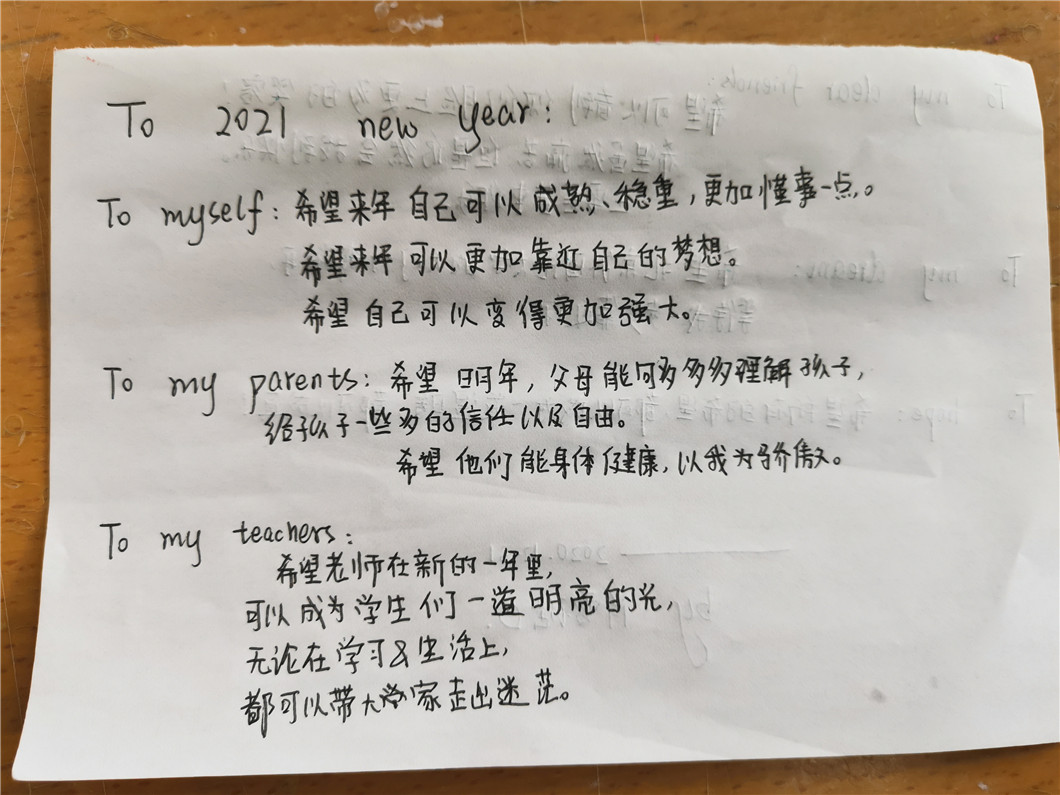 To 2021 new year:
To myself: 希望来年自己可以成熟、稳重,更加懂事一点。
希望来年可以更加靠近自己的梦想。
希望自己可以变得更加强大。
To my parents: 希望明年,父母能可多多多理解孩子,
给孩子一些多的信任以及自由。
希望他们能身体健康,以我为骄傲。
To my teachers:
希望老师在新的一年里,
可以成为学生们一道明亮的光,
无论在学习&生活上,
都可以带大家走出迷茫。